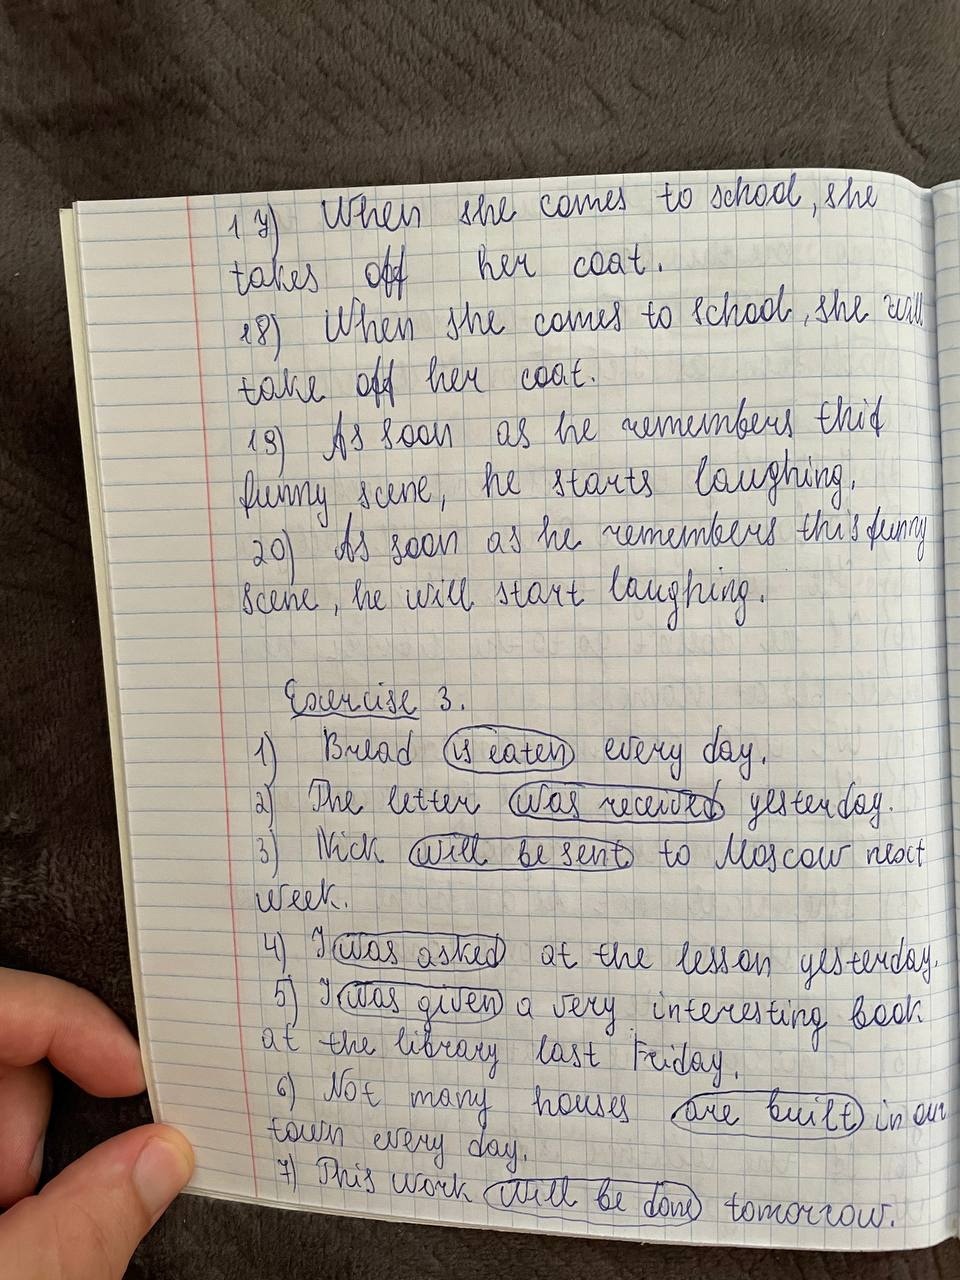 17) When she comes to school, she
takes off her coat.
18) When she comes to school, she will
take off her coat.
19) As soon as he remembers this
funny scene, he starts laughing.
20) As soon as he remembers this funny
scene, he will start laughing.
Exercise 3.
1) Bread is eaten every day.
2) The letter was received yesterday.
3) Nick will be sent to Moscow next
week.
4) I was asked at the lesson yesterday.
5) I was given a very interesting book
at the library last Friday.
6) Not many houses are built in our
town every day.
7) This work will be done tomorrow.